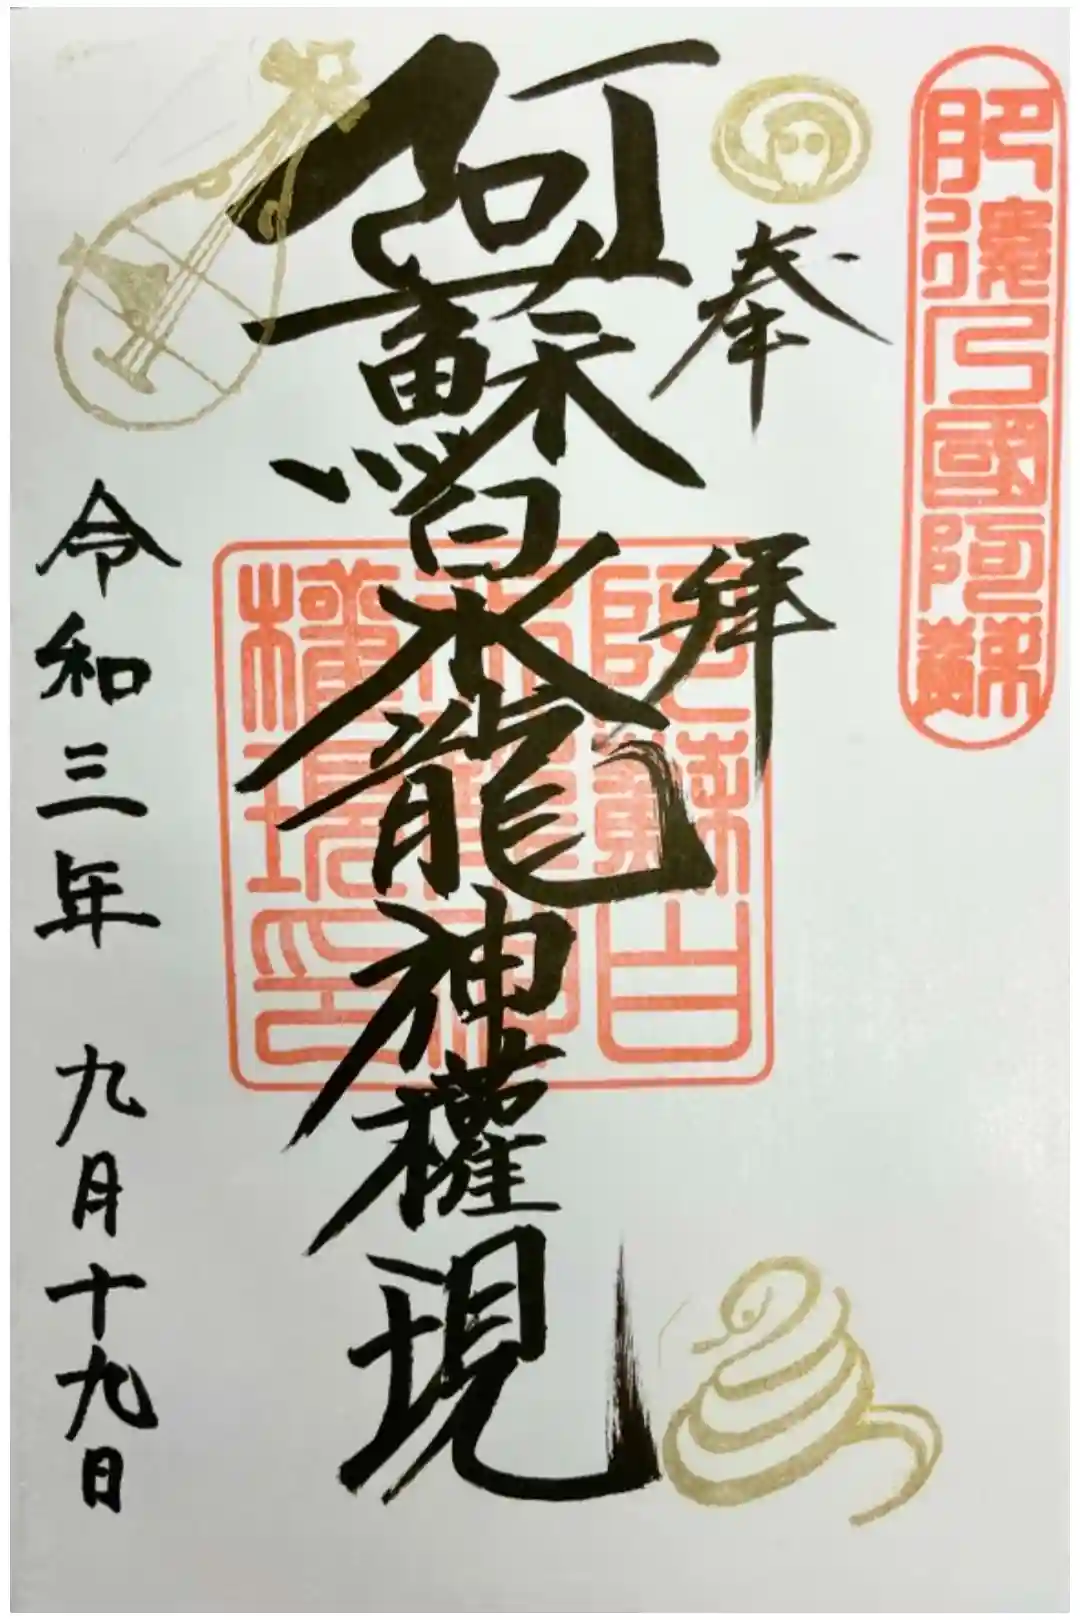 肥後乃國阿蘇
奉拝
阿蘇白水龍神權現
阿蘇白
水龍神
權現印
令和三年 九月十九日